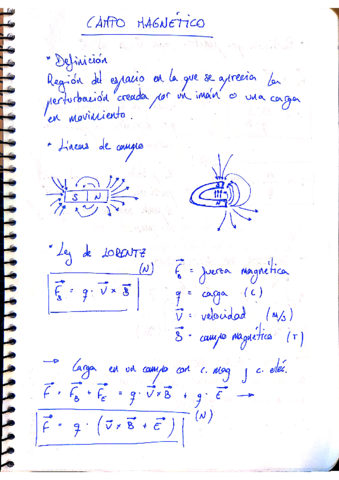 CAMPO MAGNÉTICO
* Definición
Región del espacio en la que se aprecia la
perturbación creada por un imán o una carga
en movimiento.
* Líneas de campo
S N
S
N
* Ley de LORENTZ
(N)
F⃗_B = q · V⃗ × B⃗
F⃗_B = fuerza magnética
q = carga (C)
V⃗ = velocidad (m/s)
B⃗ = campo magnético (T)
→ Carga en un campo con c. mag y c. eléc.
F⃗ = F⃗_B + F⃗_E = q · V⃗ × B⃗ + q · E⃗ →
F⃗ = q · (V⃗ × B⃗ + E⃗) (N)